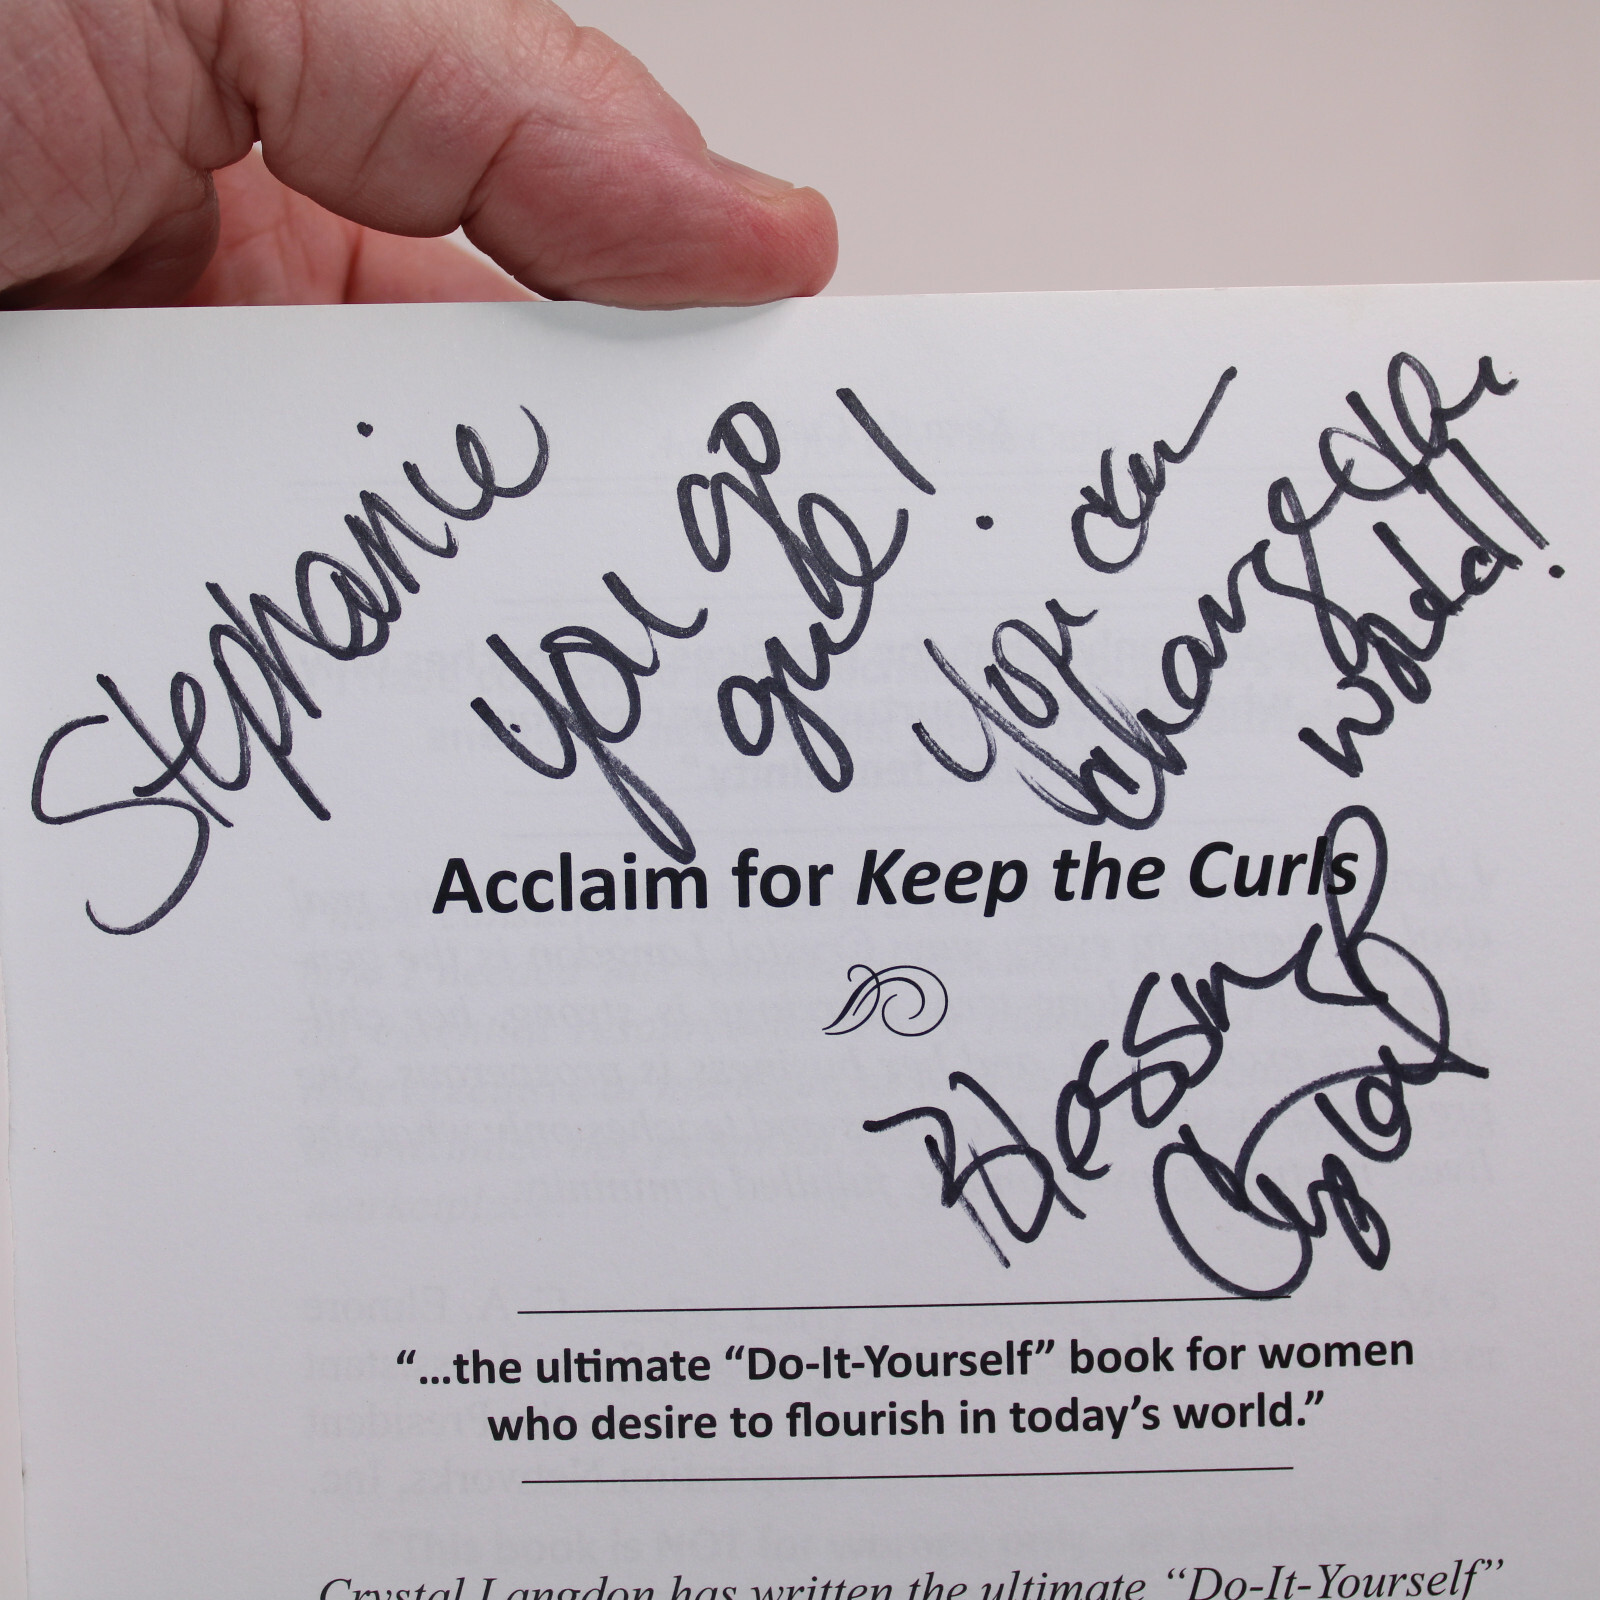 Stephanie
You go
girl!
You can
change the
world!
Acclaim for Keep the Curls
Blessings
Crystal
“...the ultimate “Do-It-Yourself” book for women
who desire to flourish in today’s world.”
Crystal Langdon has written the ultimate “Do-It-Yourself”